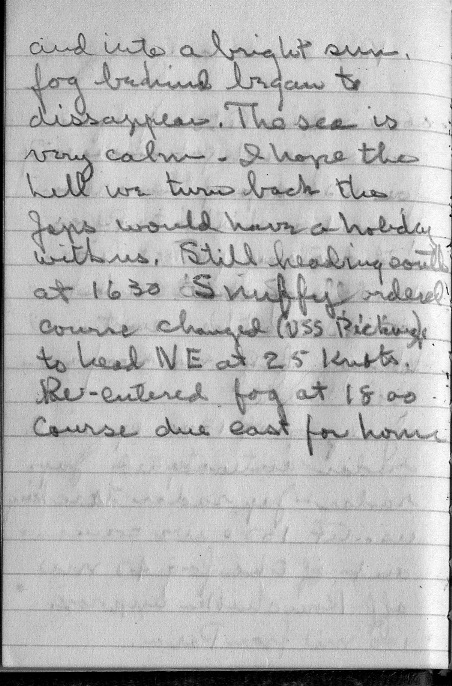 and into a bright sun.
fog behind began to
dissappear. The sea is
very calm. I hope the
hell we turn back the
Japs would have a holiday
with us. Still heading south
at 1630 "Snuffy" ordered
course changed (USS Picking)
to head NE at 25 Knots.
Re-entered fog at 1800
Course due east for home